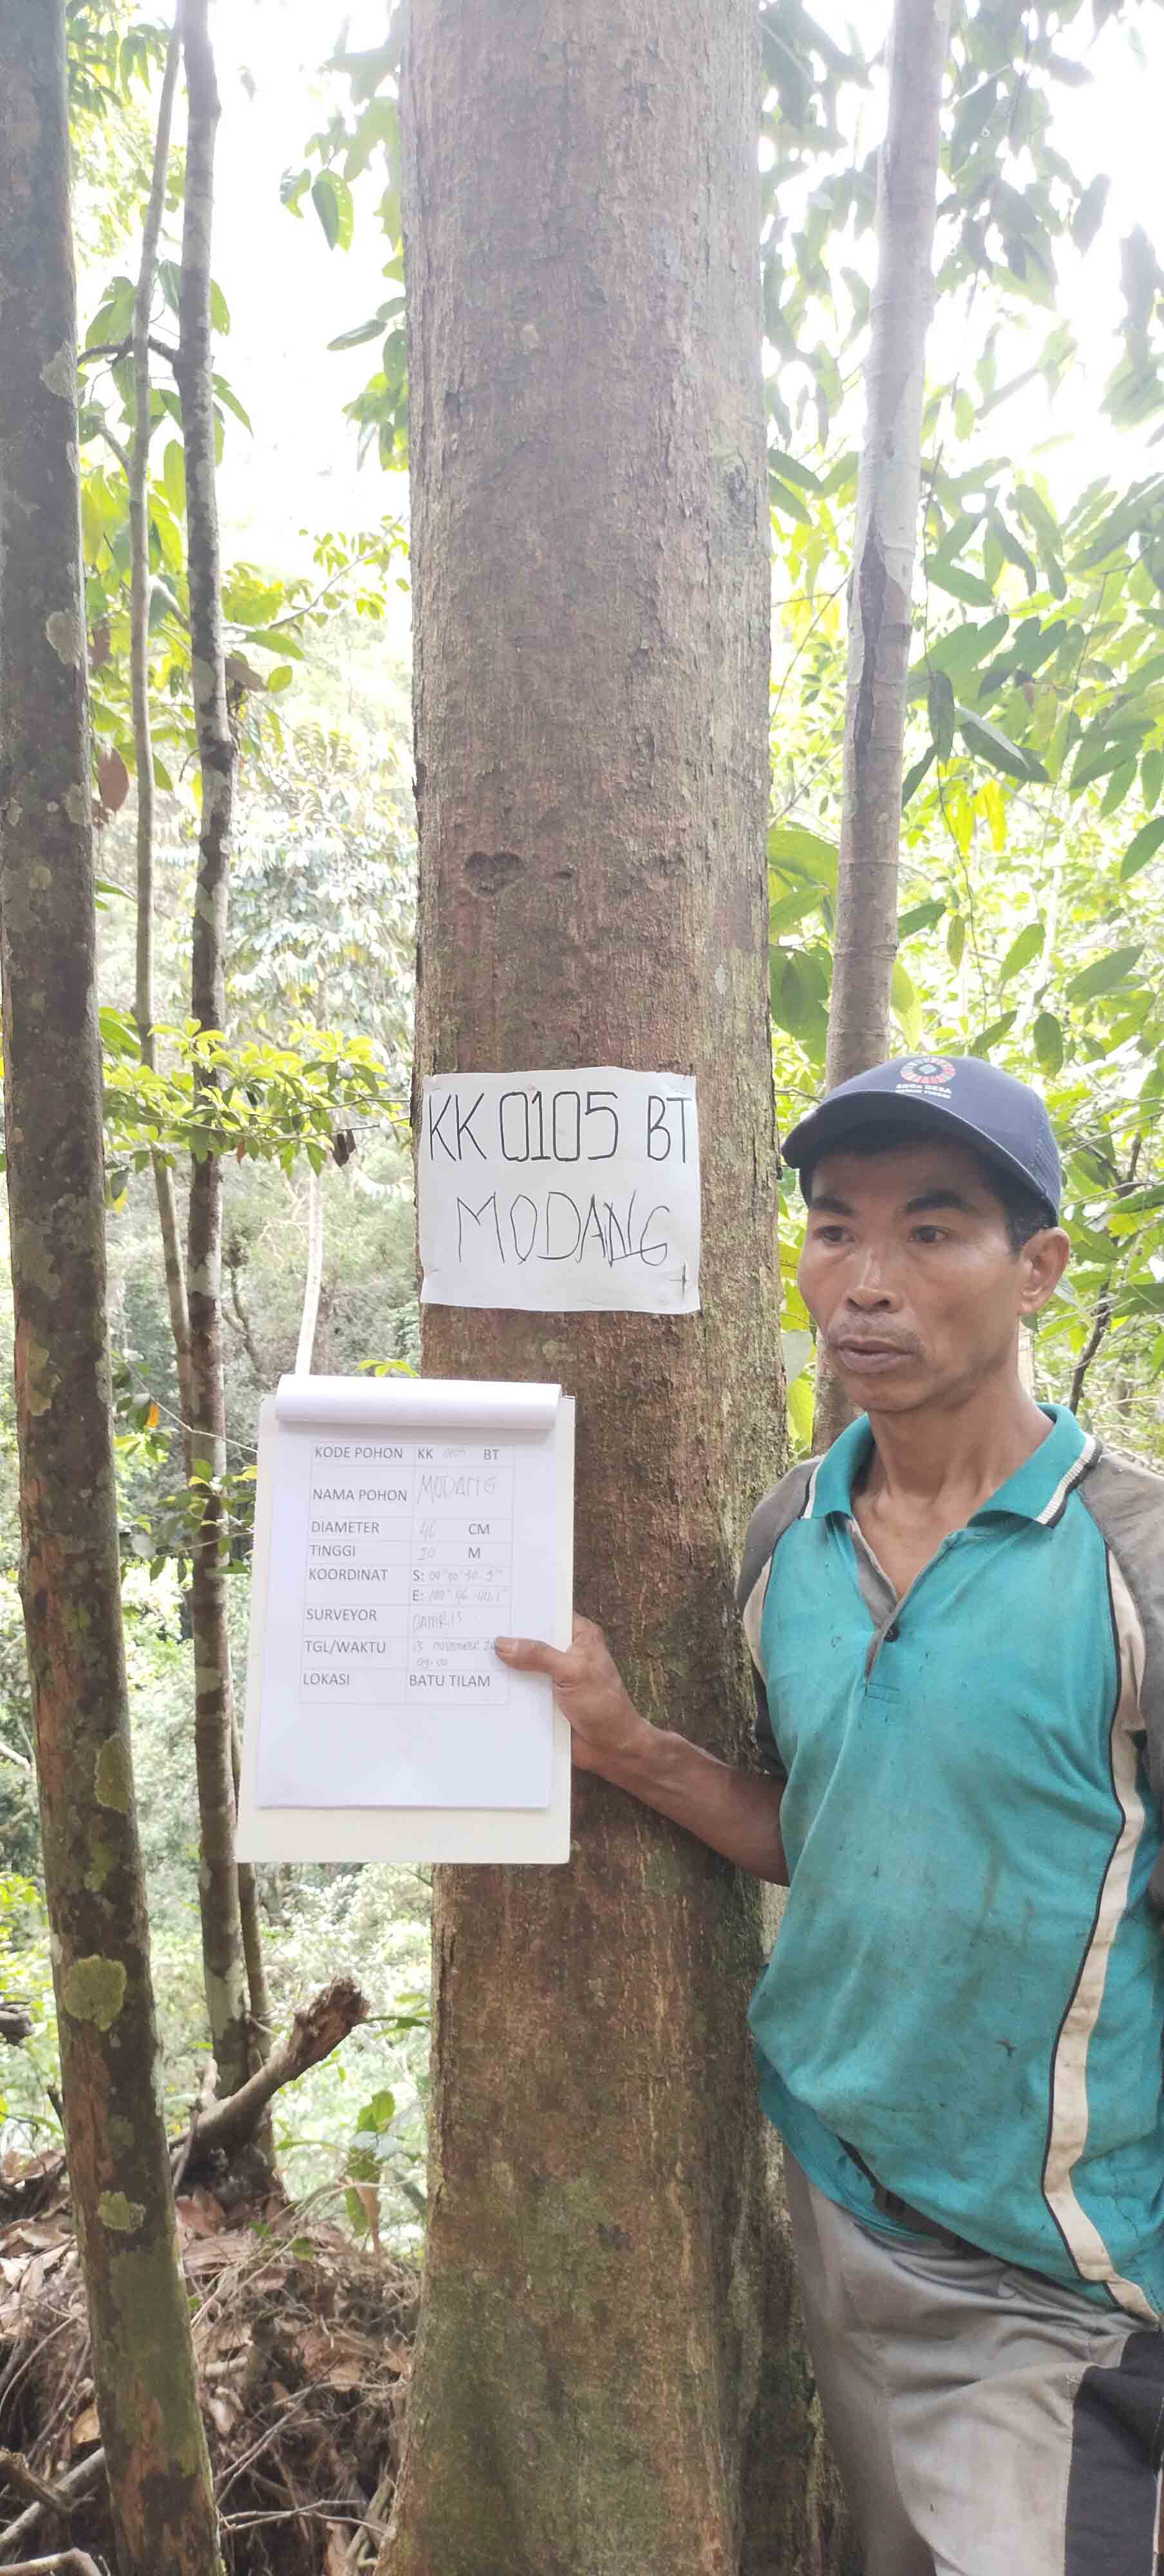 SDGs DESA
KK 0105 BT
MODANG
KODE POHON KK 0105 BT
NAMA POHON MODANG
DIAMETER 46 CM
TINGGI 20 M
KOORDINAT S: 00° 30' 30.9"
E: 100° 46' 44.1"
SURVEYOR DAMRIS
TGL/WAKTU 13 NOVEMBER
09:00
LOKASI BATU TILAM